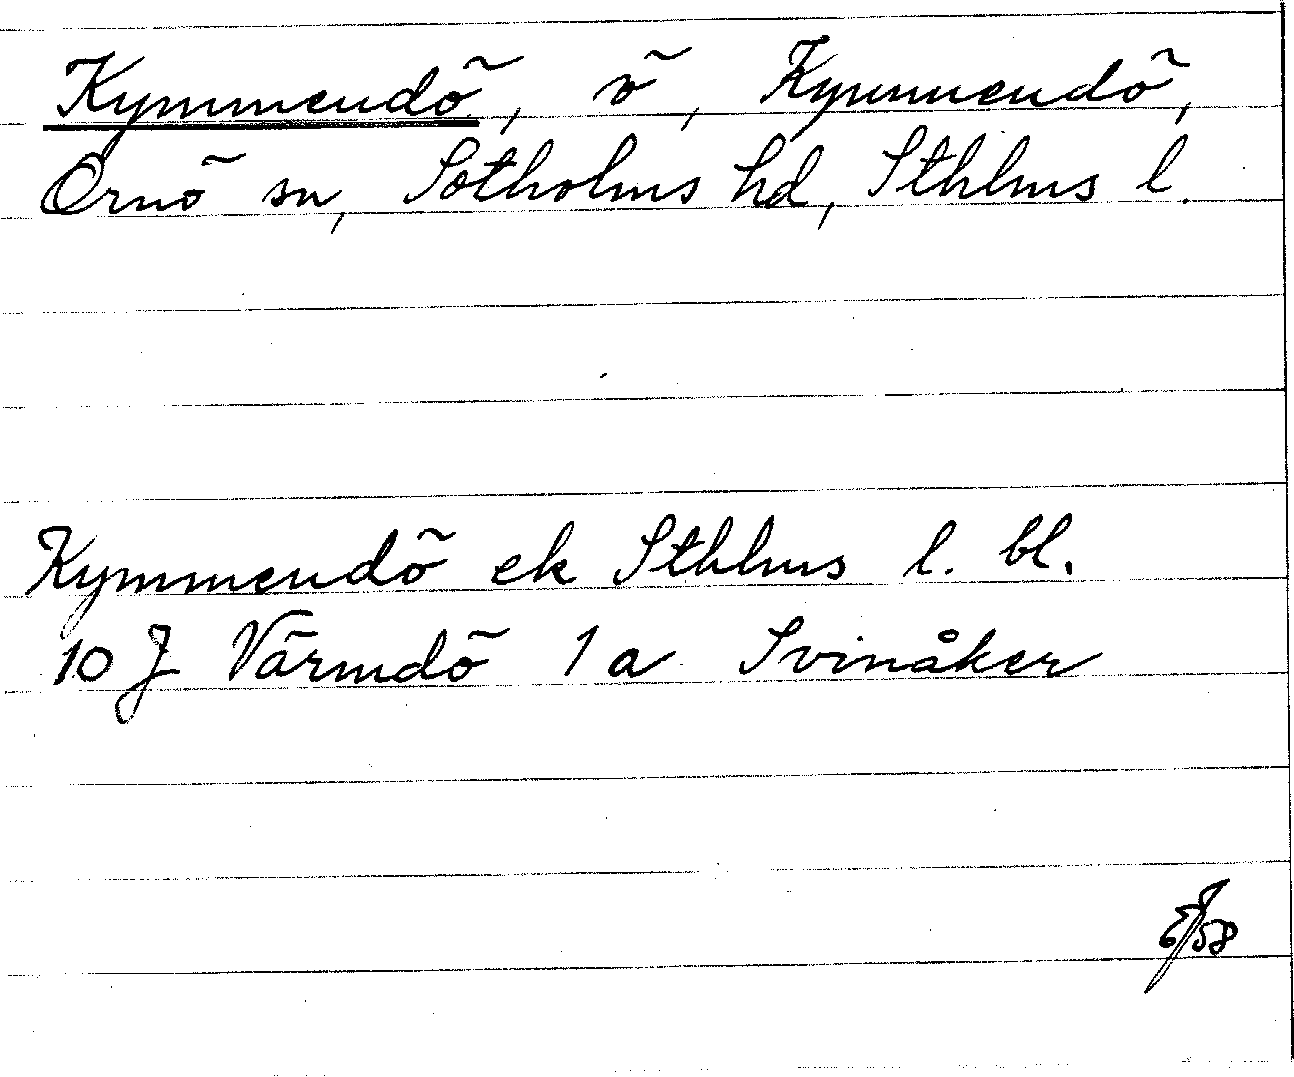 Kymmendö, ö, Kymmendö,
Ornö sn, Sotholms hd, Sthlms l.
Kymmendö ek Sthlms l. bl.
10 J Värmdö 1 a Svinåker
58